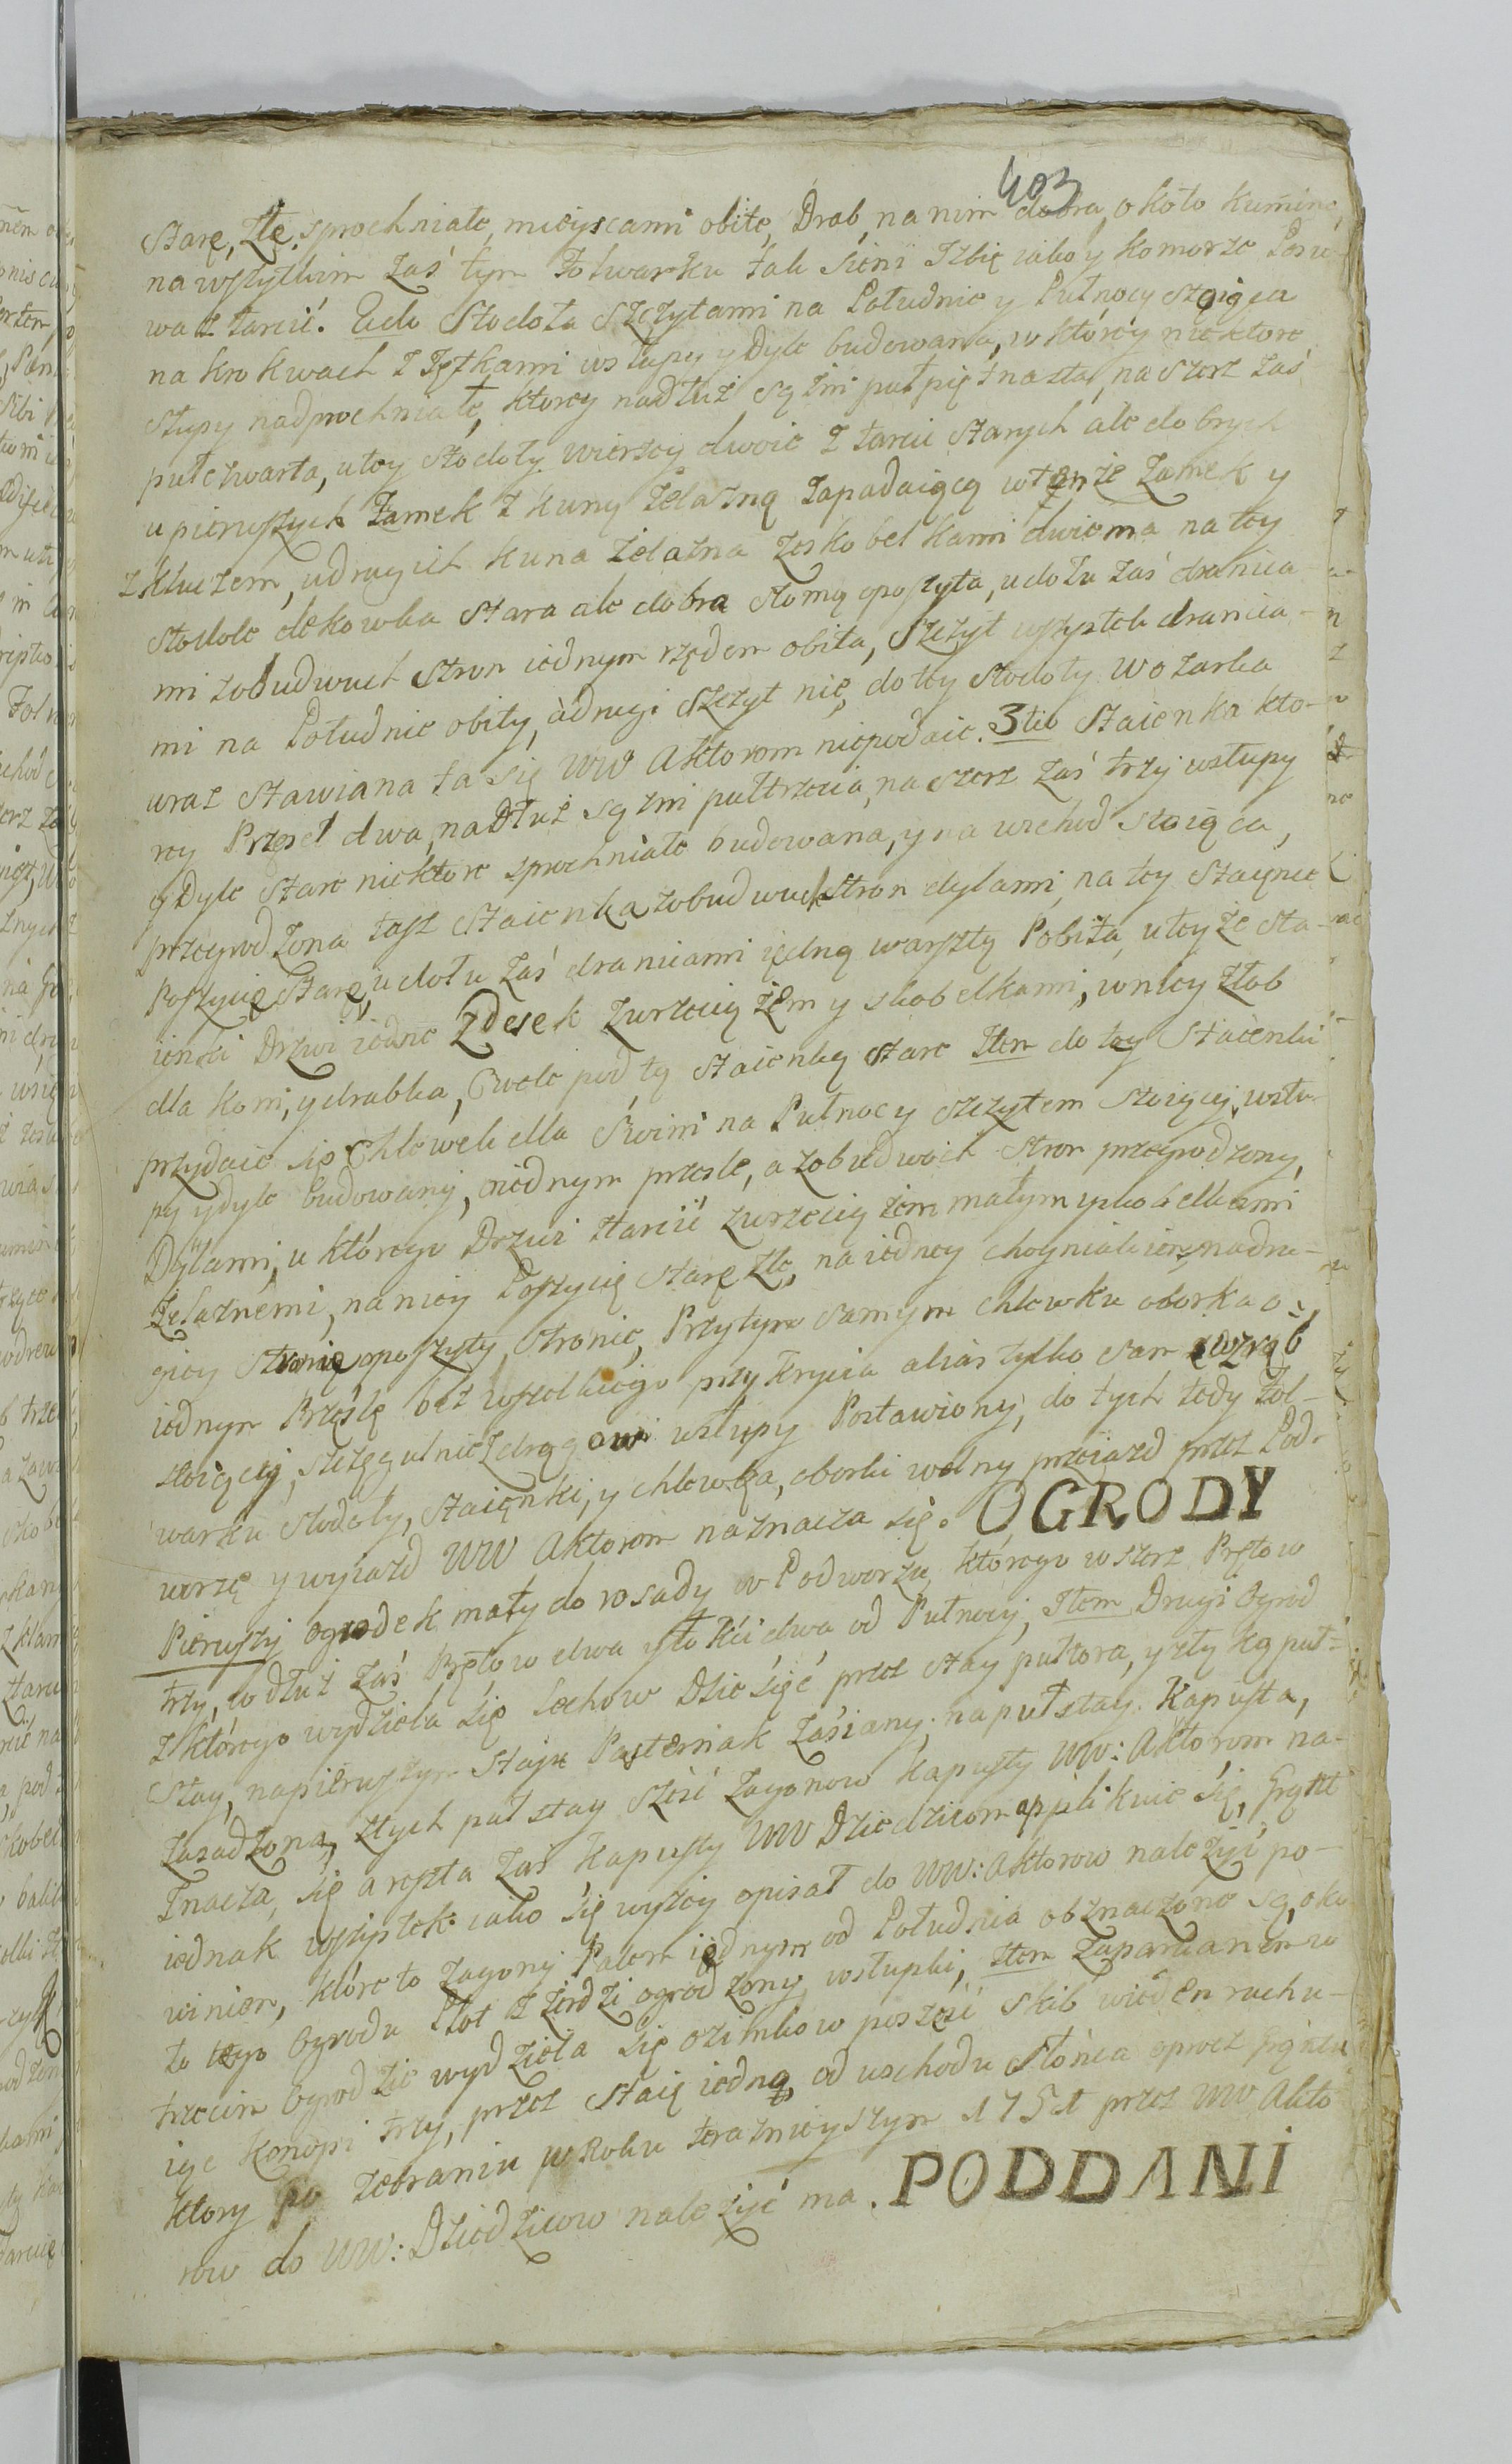 403
starę, złe, sprochniałe, mieyscami obitę, Drab, na nim dobra, około kumina,
na wszytkim zaś tym Folwarku tak sieni Izbie iako y komorze Posu-
wa z tarcic. 2do Stodoła szczytami na Południe y Pułnocy stoiąca
na krokwach z Jętkami w słupy y Dyle budowana, w którey niektore
słupy nadprochniałe, ktorey nadłuż sążni puł piętnasta, na szerz zaś
pułczwarta, u tey stodoły wierzey dwoie z tarcic starych ale dobrych
u pierwszych Zamek z kuną żelazną zapadaiącą w tenże Zamek y
z kluczem, u drugich kuna żelazna ze skobelkami dwiema na tey
stodole dekowka stara ale dobra słomą oposzyta, u dołu zaś dranica-
mi z obudwuch stron iednym rzędem obita, szczyt wszystek dranica-
mi na Południe obity, a drugi szczyt nie, do tey stodoły wozarka
wraz stawiana ta się WW Aktorom niepodaie. 3tio Staienka kto-
rey Przęseł dwa, nadłuż sążni pułtrzecia, na szerz zaś trzy w słupy
y Dyle stare niektore sprochniałe budowana, y na wschod stoiąca,
przegrodzona tasz staienka z obudwuch stron dylami, na tey staynce
Poszycię starę, u dołu zaś dranicami iedną warsztą Pobita, u teyże sta-
ienki Drzwi iedne z desek z wrzeciążem y skobelkami, w niey żłob
dla koni, y drabka, Cwele pod tą staienką stare Item do tey staienki
przydaie się Chlewek dla Swini na Pułnocy szczytem stoiącej, w słu-
py y dyle budowany, o iednym przęśle, a z obudwoch stron przegrodzony,
Dylami, u którego Drzwi z tarcic z wrzeciążem małym y skobelkami
żelaznemi, na niey Poszycię starę złe, na iedney choyniakiem, na dru-
giey stronię oposzyty stronie, Przytym samym chlewku oborka o
iednym Przęślę bez wszelkiego przykrycia alias tylko sam zdzrąb
stoiącey, szczegulnie z drągow w słupy Postawiony, do tych tedy Fol-
warku stodoły, staięnki, y chlewka, oborki wolny przeiazd przez Pod-
worzę y wyiazd WW Aktorom naznacza się. OGRODY
Pierwszy ogrodek mały do rosady w Podworzu, którego w szerz Prętow
trzy, w dłuż zaś Prętow dwa y łokci dwa od Pułnocy, Item Drugi Ogrod
z którego wydziela się Lechow Dziesięć przez stay pułtora, y z tyłką puł-
stay, na pierwszym staju Pasternak zasiany, na puł stay Kapusta,
zasadzona, z tych puł stay sześć Zagonow kapusty WW: Aktorom na-
znacza, się a reszta zaś, kapusty WW Dziedzicom applikuie się, Grunt
iednak wszystek iako się wyżey opisał do WW: Aktorow należyć po-
winien, które to zagony Palem iednym od Południa obznaczone są, oko-
ło tego Ogrodu Płot z żerdzi ogrodzony w słupki, Item Zaparkanem w
trzecim Ogrodzie wydziela się ozimkow po sześć skib wieden rachu-
iąc konopi trzy, przez staię iedną, od wschodu słońca oprocz Gruntu
ktory po zebraniu w Roku teraznieyszym 1751 przez WW Akto
row do WW: Dziedzicow należyć ma. PODDANI